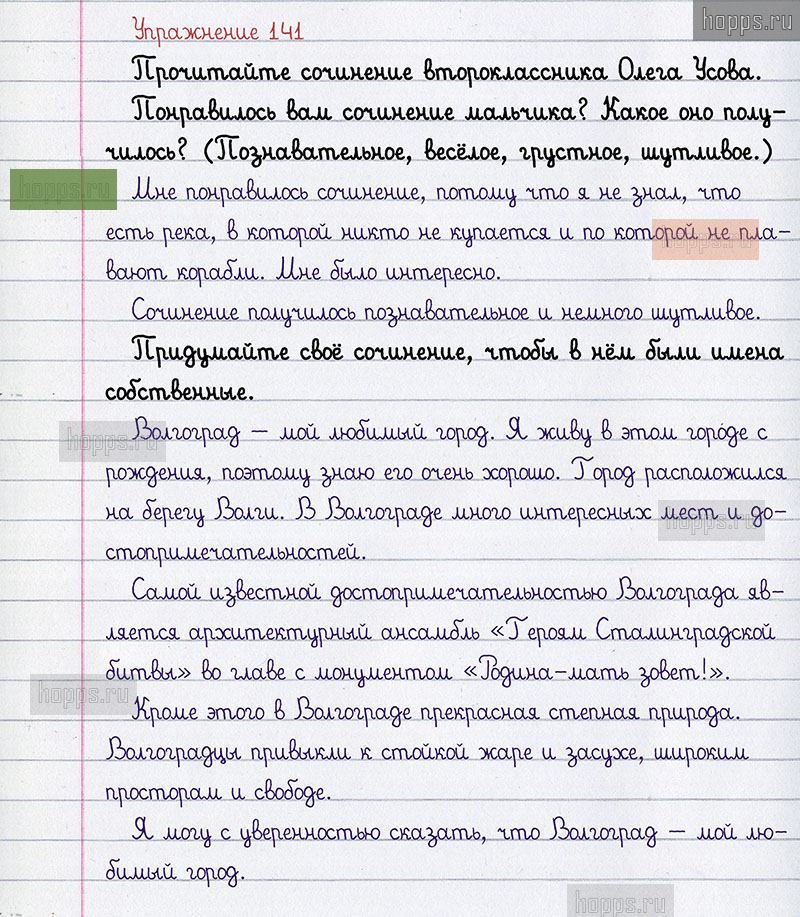 hopps.ru
Упражнение 141
Прочитайте сочинение второклассника Олега Усова.
Понравилось вам сочинение мальчика? Какое оно полу-
чилось? (Познавательное, весёлое, грустное, шутливое.)
hopps.ru
Мне понравилось сочинение, потому что я не знал, что
есть река, в которой никто не купается и по которой не пла-
hopps.ru
вают корабли. Мне было интересно.
Сочинение получилось познавательное и немного шутливое.
Придумайте своё сочинение, чтобы в нём были имена
собственные.
hopps.ru
Волгоград – мой любимый город. Я живу в этом городе с
рождения, поэтому знаю его очень хорошо. Город расположился
на берегу Волги. В Волгограде много интересных мест и до-
hopps.ru
стопримечательностей.
Самой известной достопримечательностью Волгограда яв-
ляется архитектурный ансамбль «Героям Сталинградской
битвы» во главе с монументом «Родина-мать зовет!».
hopps.ru
Кроме этого в Волгограде прекрасная степная природа.
Волгоградцы привыкли к стойкой жаре и засухе, широким
просторам и свободе.
Я могу с уверенностью сказать, что Волгоград – мой лю-
бимый город.
hopps.ru